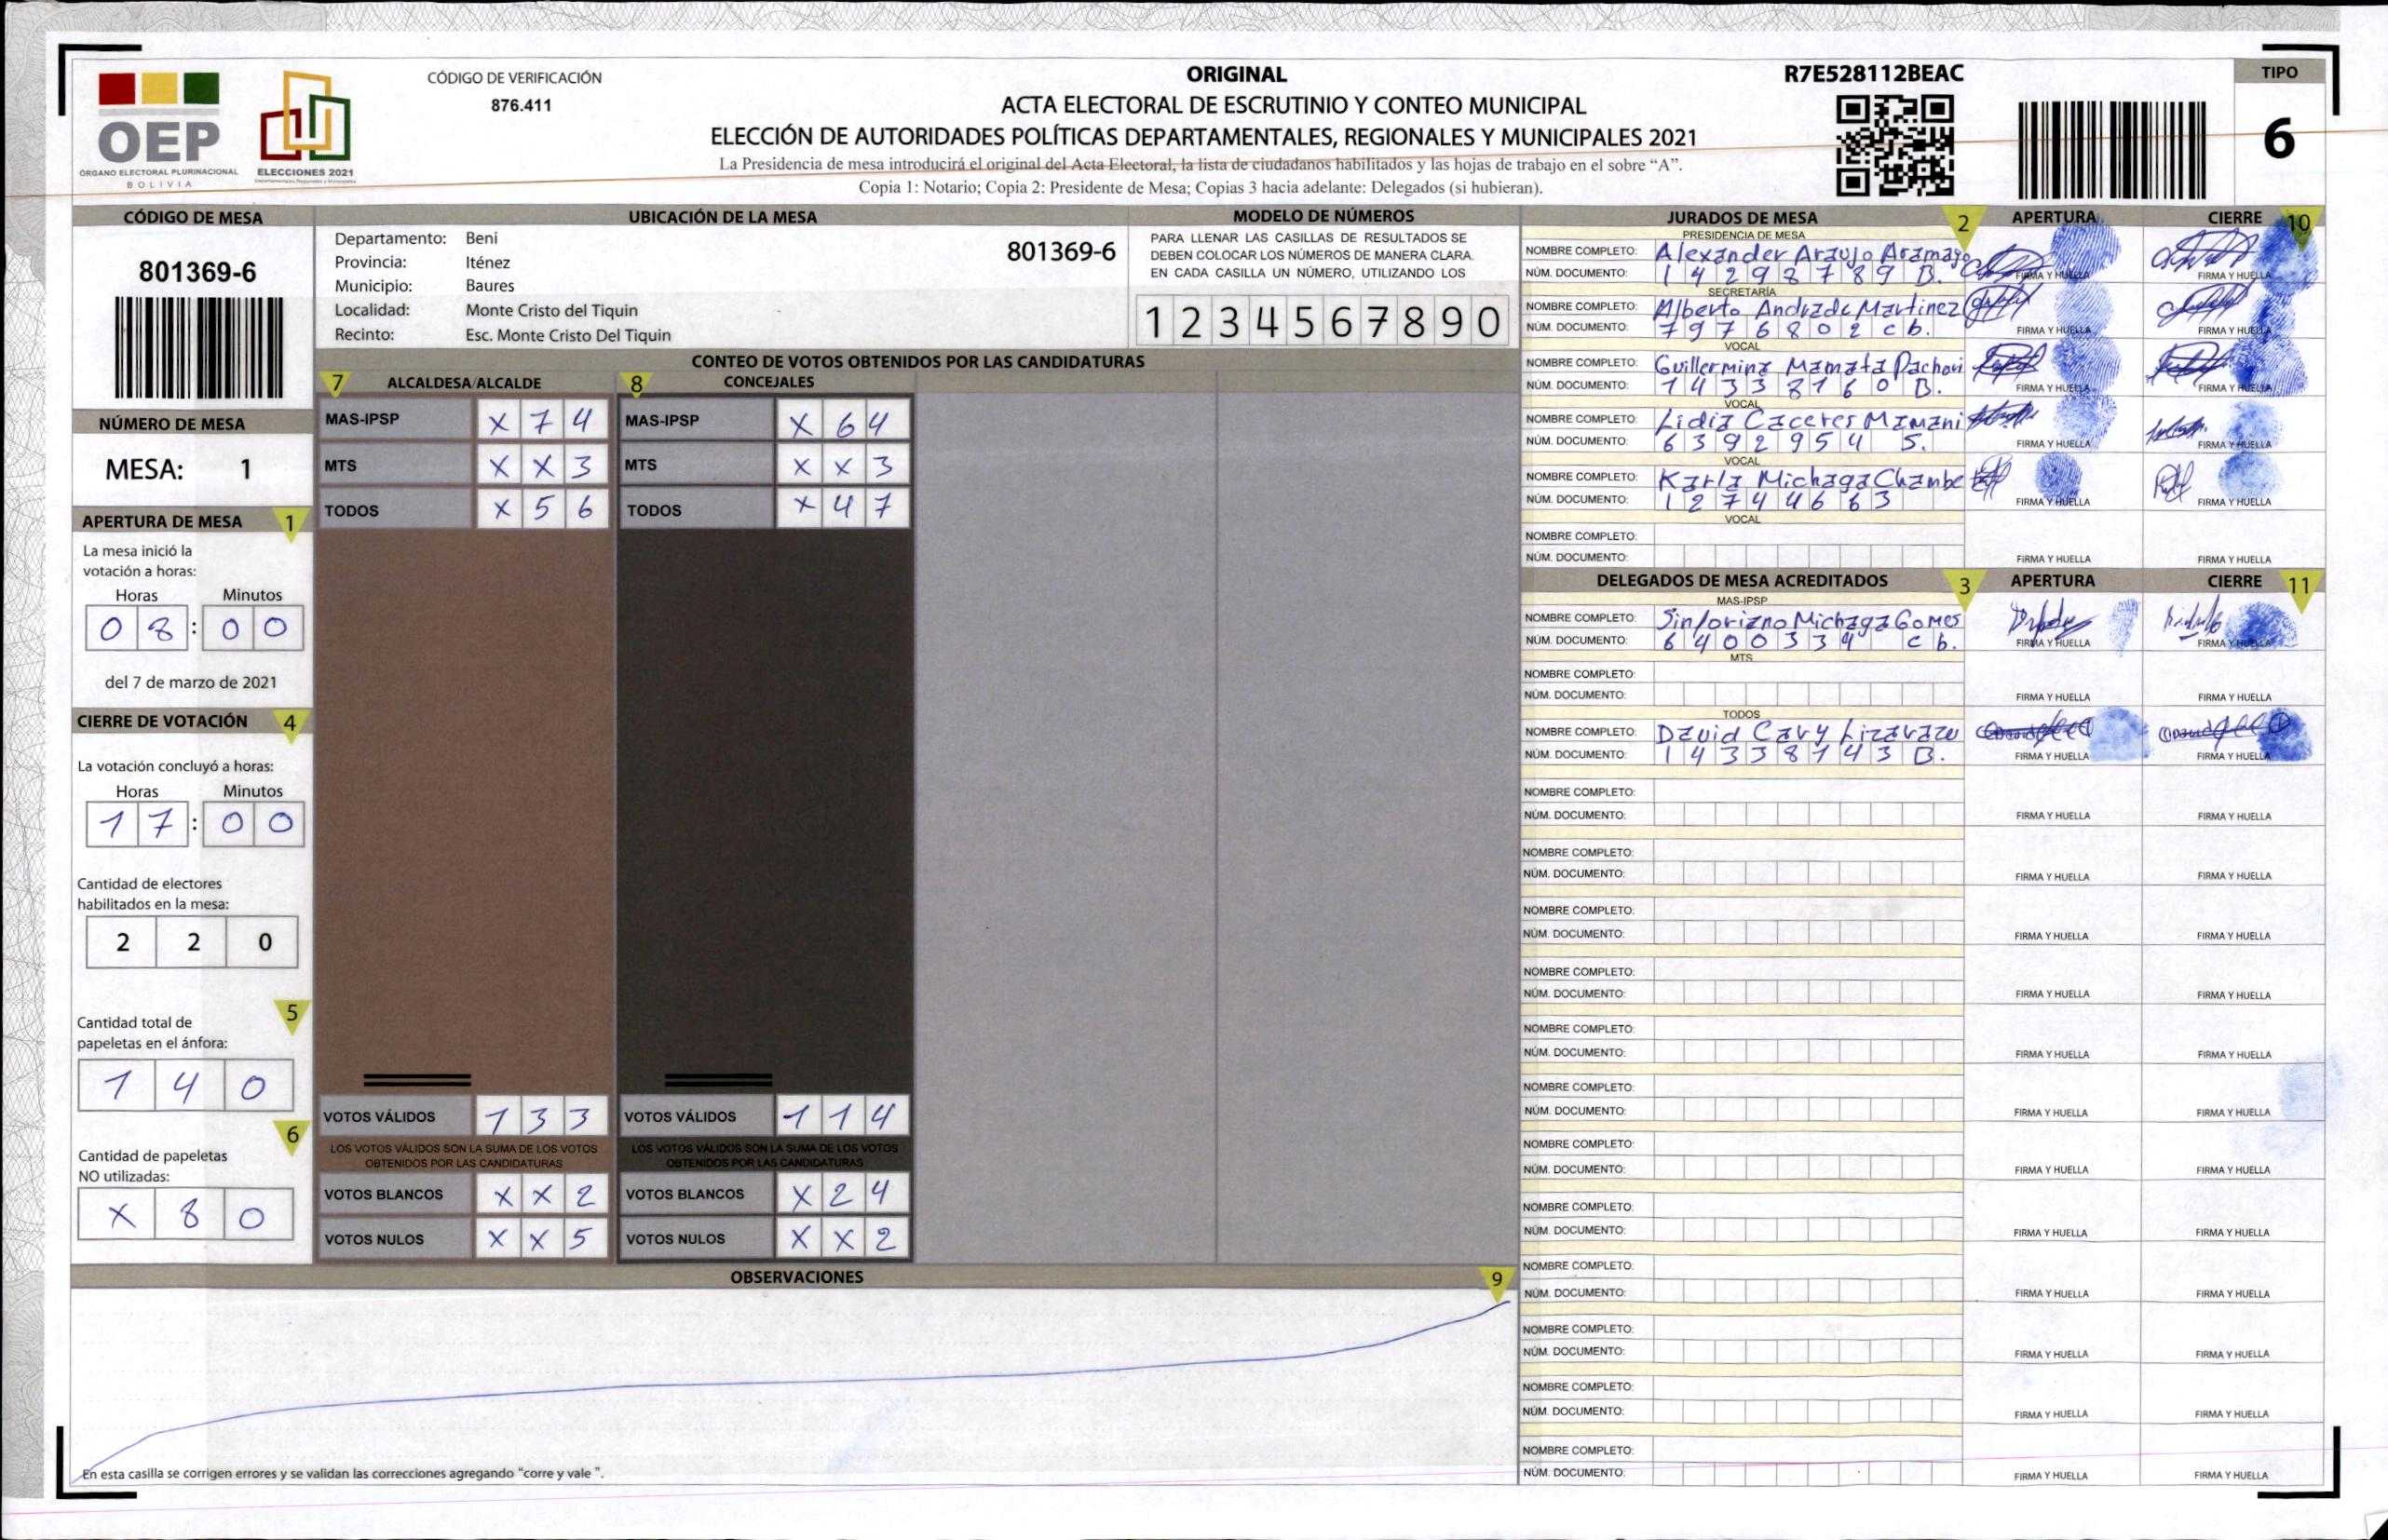 OEP
ÓRGANO ELECTORAL PLURINACIONAL
BOLIVIA
ELECCIONES 2021
CÓDIGO DE VERIFICACIÓN
876.411
ORIGINAL
ACTA ELECTORAL DE ESCRUTINIO Y CONTEO MUNICIPAL
ELECCIÓN DE AUTORIDADES POLÍTICAS DEPARTAMENTALES, REGIONALES Y MUNICIPALES 2021
La Presidencia de mesa introducirá el original del Acta Electoral, la lista de ciudadanos habilitados y las hojas de trabajo en el sobre “A”.
Copia 1: Notario; Copia 2: Presidente de Mesa; Copias 3 hacia adelante: Delegados (si hubieran).
R7E528112BEAC
TIPO
6
CÓDIGO DE MESA
801369-6
NÚMERO DE MESA
MESA: 1
APERTURA DE MESA 1
La mesa inició la
votación a horas:
Horas Minutos
0 8 : 0 0
del 7 de marzo de 2021
CIERRE DE VOTACIÓN 4
La votación concluyó a horas:
Horas Minutos
1 7 : 0 0
Cantidad de electores
habilitados en la mesa:
2 2 0
5
Cantidad total de
papeletas en el ánfora:
1 4 0
6
Cantidad de papeletas
NO utilizadas:
X 8 0
UBICACIÓN DE LA MESA
Departamento: Beni
801369-6
Provincia: Iténez
Municipio: Baures
Localidad: Monte Cristo del Tiquin
Recinto: Esc. Monte Cristo Del Tiquin
MODELO DE NÚMEROS
PARA LLENAR LAS CASILLAS DE RESULTADOS SE
DEBEN COLOCAR LOS NÚMEROS DE MANERA CLARA.
EN CADA CASILLA UN NÚMERO, UTILIZANDO LOS
1 2 3 4 5 6 7 8 9 0
CONTEO DE VOTOS OBTENIDOS POR LAS CANDIDATURAS
7 ALCALDESA/ALCALDE
MAS-IPSP X 7 4
MTS X X 3
TODOS X 5 6
VOTOS VÁLIDOS 1 3 3
LOS VOTOS VÁLIDOS SON LA SUMA DE LOS VOTOS
OBTENIDOS POR LAS CANDIDATURAS
VOTOS BLANCOS X X 2
VOTOS NULOS X X 5
8 CONCEJALES
MAS-IPSP X 6 4
MTS X X 3
TODOS X 4 7
VOTOS VÁLIDOS 1 1 4
LOS VOTOS VÁLIDOS SON LA SUMA DE LOS VOTOS
OBTENIDOS POR LAS CANDIDATURAS
VOTOS BLANCOS X 2 4
VOTOS NULOS X X 2
OBSERVACIONES 9
En esta casilla se corrigen errores y se validan las correcciones agregando “corre y vale ”.
JURADOS DE MESA 2 APERTURA CIERRE 10
PRESIDENCIA DE MESA
NOMBRE COMPLETO: Alexander Araujo Aramayo
NÚM. DOCUMENTO: 1 4 2 9 8 7 8 9 B. FIRMA Y HUELLA FIRMA Y HUELLA
SECRETARÍA
NOMBRE COMPLETO: Alberto Andrade Martinez
NÚM. DOCUMENTO: 7 9 7 6 8 0 2 c b. FIRMA Y HUELLA FIRMA Y HUELLA
VOCAL
NOMBRE COMPLETO: Guillermina Mamata Pachovi
NÚM. DOCUMENTO: 1 4 3 3 8 1 6 0 B. FIRMA Y HUELLA FIRMA Y HUELLA
VOCAL
NOMBRE COMPLETO: Lidia Caceres Mamani
NÚM. DOCUMENTO: 6 3 9 2 9 5 4 S. FIRMA Y HUELLA FIRMA Y HUELLA
VOCAL
NOMBRE COMPLETO: Karla Michaga Chambe
NÚM. DOCUMENTO: 1 2 7 4 4 6 6 3 FIRMA Y HUELLA FIRMA Y HUELLA
VOCAL
NOMBRE COMPLETO:
NÚM. DOCUMENTO: FIRMA Y HUELLA FIRMA Y HUELLA
DELEGADOS DE MESA ACREDITADOS 3 APERTURA CIERRE 11
MAS-IPSP
NOMBRE COMPLETO: Sinforiano Michaga Gomes
NÚM. DOCUMENTO: 6 4 0 0 3 3 4 c b. FIRMA Y HUELLA FIRMA Y HUELLA
MTS
NOMBRE COMPLETO:
NÚM. DOCUMENTO: FIRMA Y HUELLA FIRMA Y HUELLA
TODOS
NOMBRE COMPLETO: David Cavy Lizarazu
NÚM. DOCUMENTO: 1 4 3 3 8 1 4 3 B. FIRMA Y HUELLA FIRMA Y HUELLA
NOMBRE COMPLETO:
NÚM. DOCUMENTO: FIRMA Y HUELLA FIRMA Y HUELLA
NOMBRE COMPLETO:
NÚM. DOCUMENTO: FIRMA Y HUELLA FIRMA Y HUELLA
NOMBRE COMPLETO:
NÚM. DOCUMENTO: FIRMA Y HUELLA FIRMA Y HUELLA
NOMBRE COMPLETO:
NÚM. DOCUMENTO: FIRMA Y HUELLA FIRMA Y HUELLA
NOMBRE COMPLETO:
NÚM. DOCUMENTO: FIRMA Y HUELLA FIRMA Y HUELLA
NOMBRE COMPLETO:
NÚM. DOCUMENTO: FIRMA Y HUELLA FIRMA Y HUELLA
NOMBRE COMPLETO:
NÚM. DOCUMENTO: FIRMA Y HUELLA FIRMA Y HUELLA
NOMBRE COMPLETO:
NÚM. DOCUMENTO: FIRMA Y HUELLA FIRMA Y HUELLA
NOMBRE COMPLETO:
NÚM. DOCUMENTO: FIRMA Y HUELLA FIRMA Y HUELLA
NOMBRE COMPLETO:
NÚM. DOCUMENTO: FIRMA Y HUELLA FIRMA Y HUELLA
NOMBRE COMPLETO:
NÚM. DOCUMENTO: FIRMA Y HUELLA FIRMA Y HUELLA
NOMBRE COMPLETO:
NÚM. DOCUMENTO: FIRMA Y HUELLA FIRMA Y HUELLA